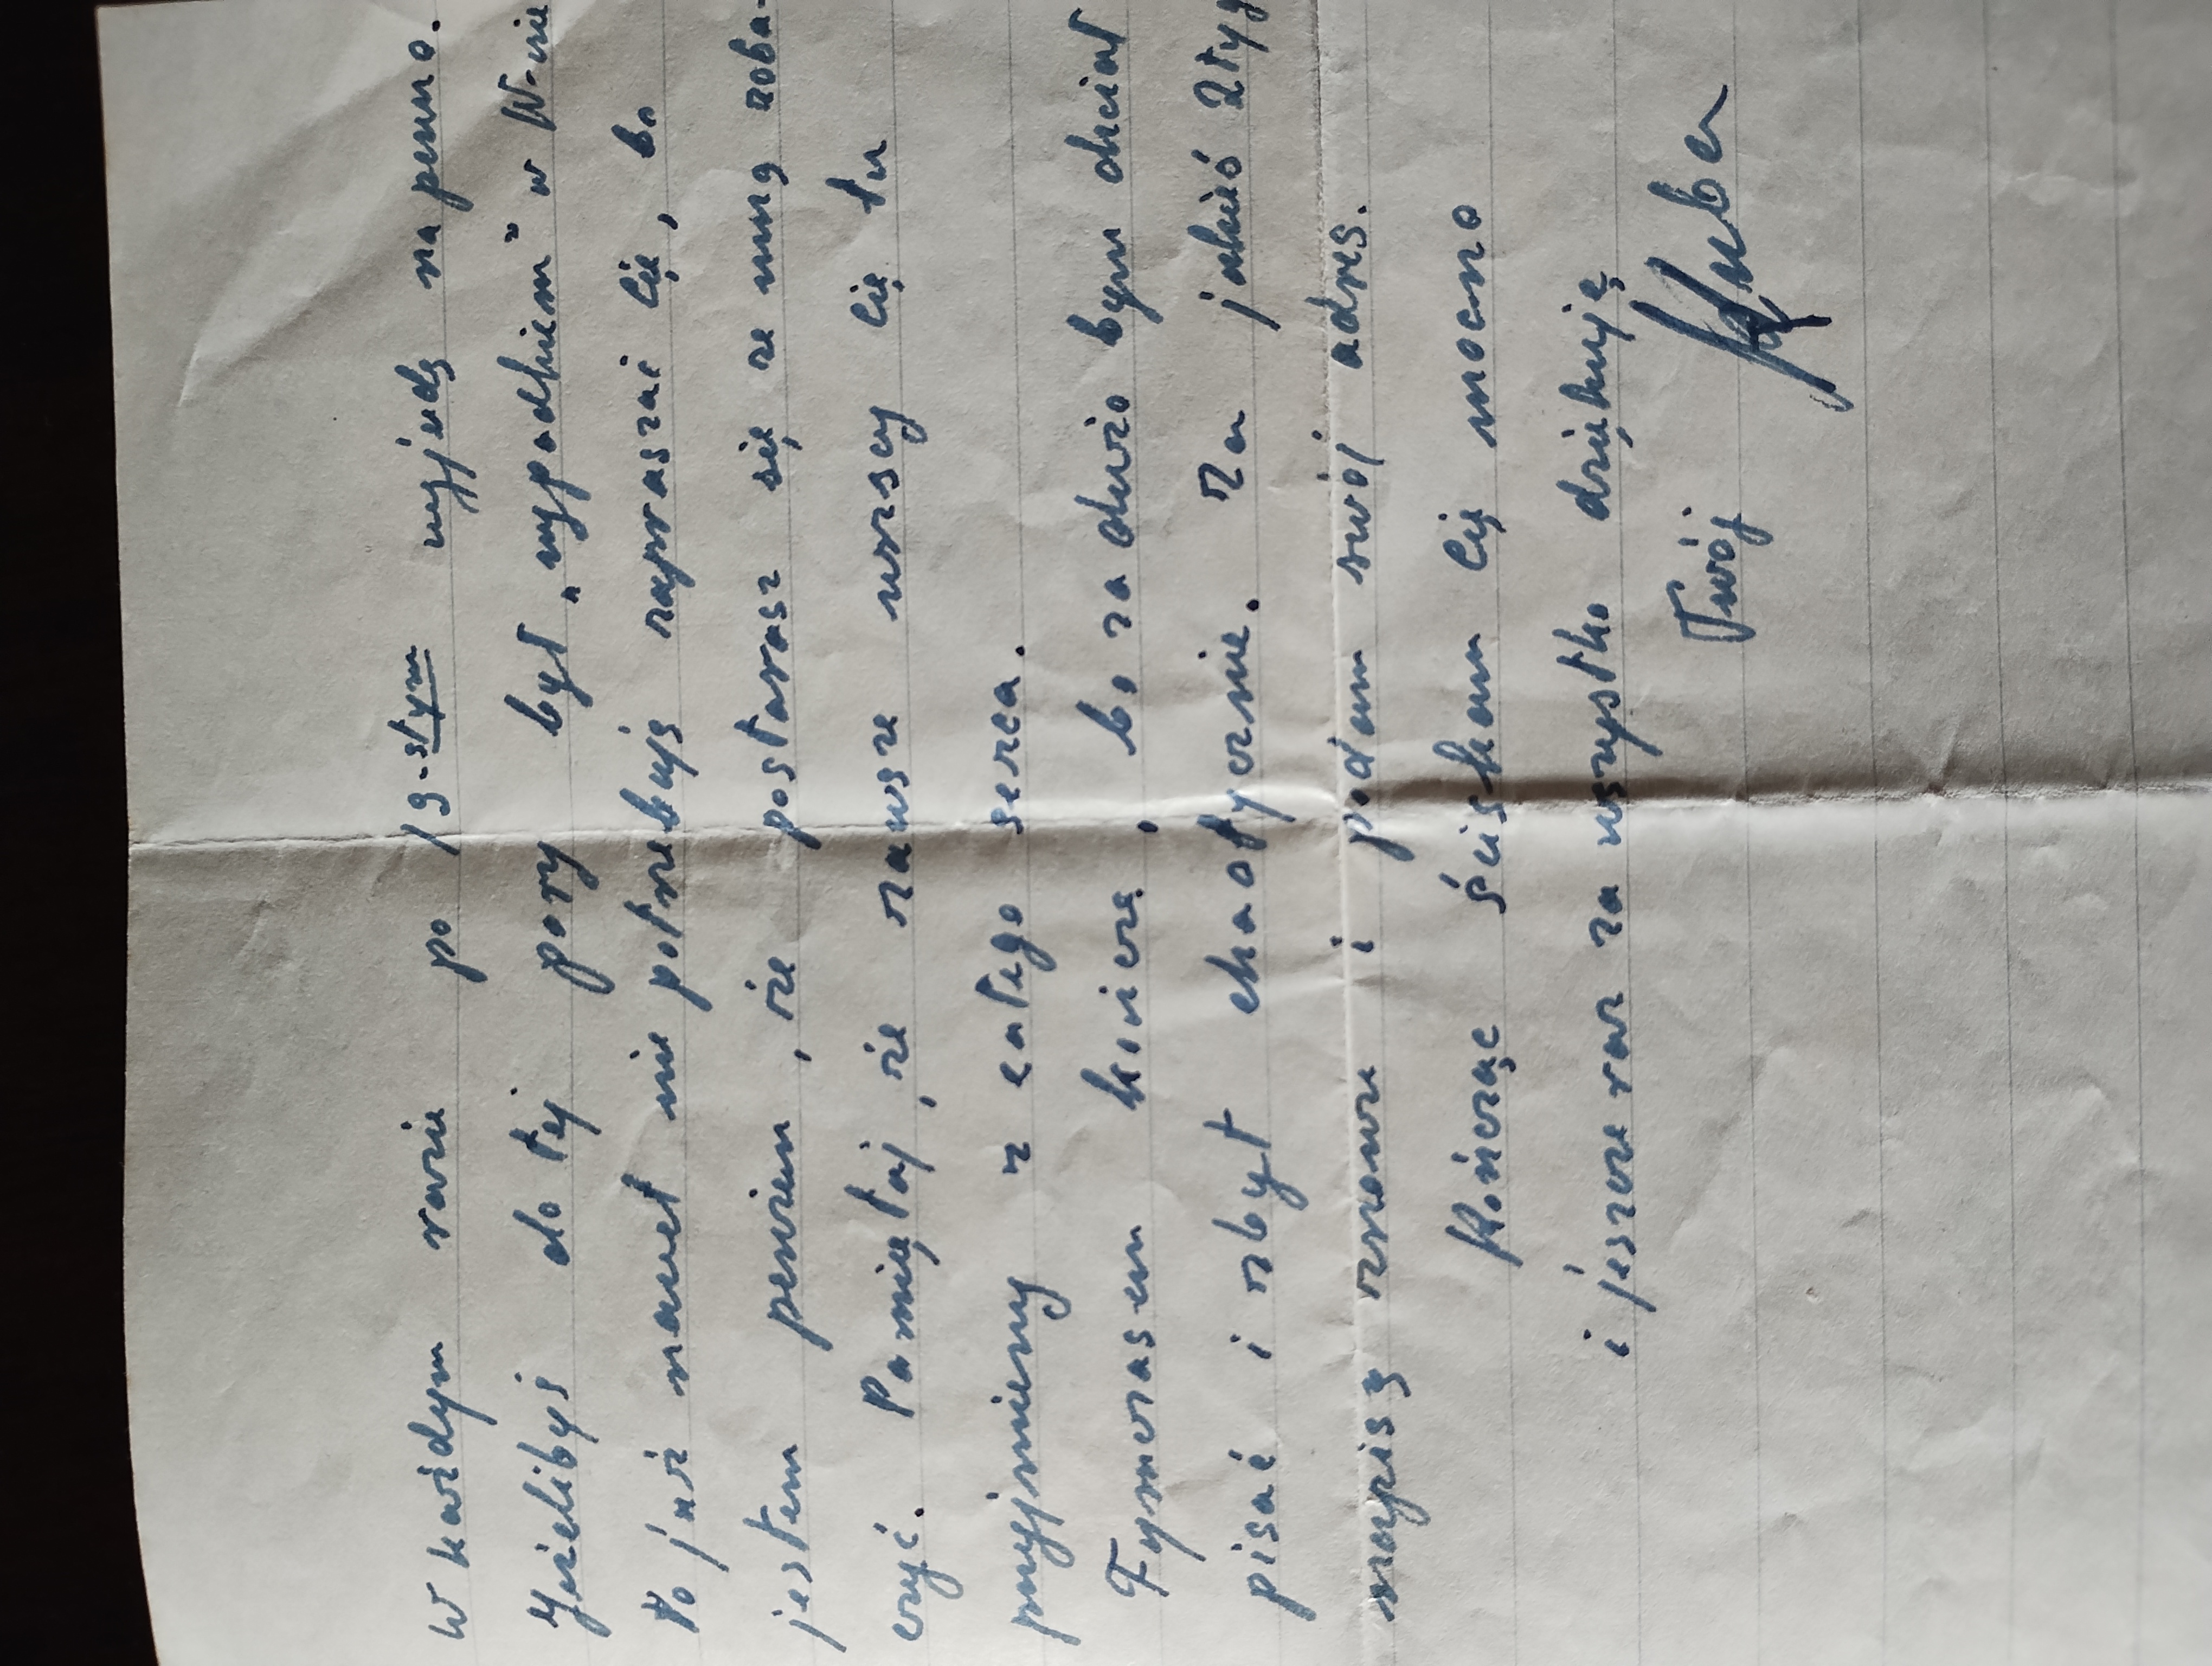 W każdym razie po 19-stym wyjadę na pewno.
Jeżelibyś do tej pory był „wypadkiem" w W-wie
to już nawet nie potrzebuję zapraszać Cię, bo
jestem pewien, że postarasz się ze mną zoba-
czyć. Pamiętaj, że zawsze wszscy Cię tu
przyjmiemy z całego serca.
Tymczasem kończę, bo za dużo bym chciał
pisać i zbyt chaotycznie. Za jakieś 2 tyg
napiszę znowu i podam swój adres.
Kończąc ściskam Cię mocno
i jeszcze raz za wszystko dziękuję
Twój